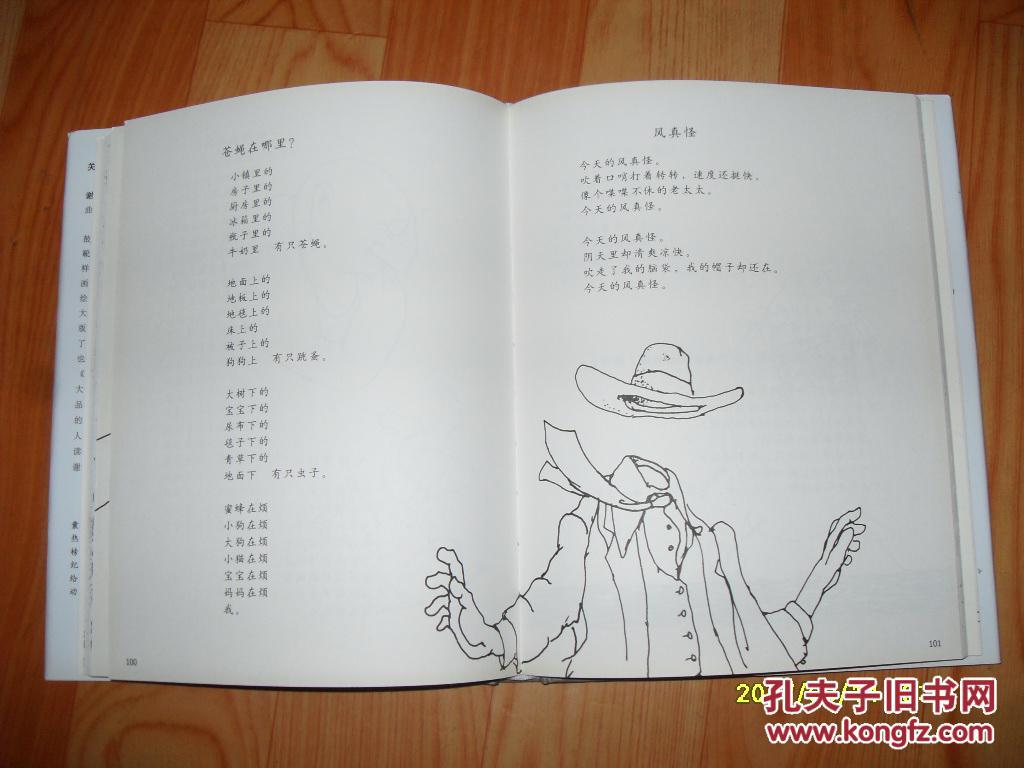 苍蝇在哪里？
小镇里的
房子里的
厨房里的
冰箱里的
瓶子里的
牛奶里 有只苍蝇。
地面上的
地板上的
地毯上的
床上的
被子上的
狗狗上 有只跳蚤。
大树下的
宝宝下的
尿布下的
毯子下的
青草下的
地面下 有只虫子。
蜜蜂在烦
小狗在烦
大狗在烦
小猫在烦
宝宝在烦
妈妈在烦
我。
100
风真怪
今天的风真怪。
吹着口哨打着转转，速度还挺快。
像个喋喋不休的老太太。
今天的风真怪。
今天的风真怪。
阴天里却清爽凉快。
吹走了我的脑袋，我的帽子却还在。
今天的风真怪。
101
孔夫子旧书网
www.kongfz.com